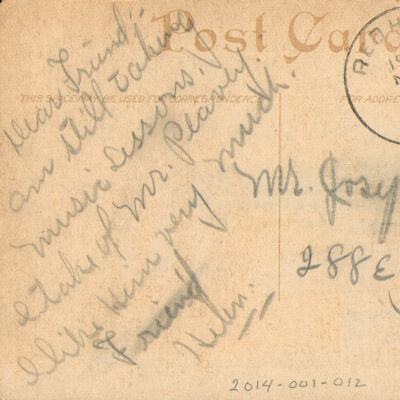 Post Card
THIS SPACE MAY BE USED FOR CORRESPONDENCE
FOR ADDRE
Dear Friend:-
am still takeing
music Lessons.
I take of Mr. Peavey.
I like Him very much.
Friend
Helen.
Mr. Josep
288 E
2014-001-012